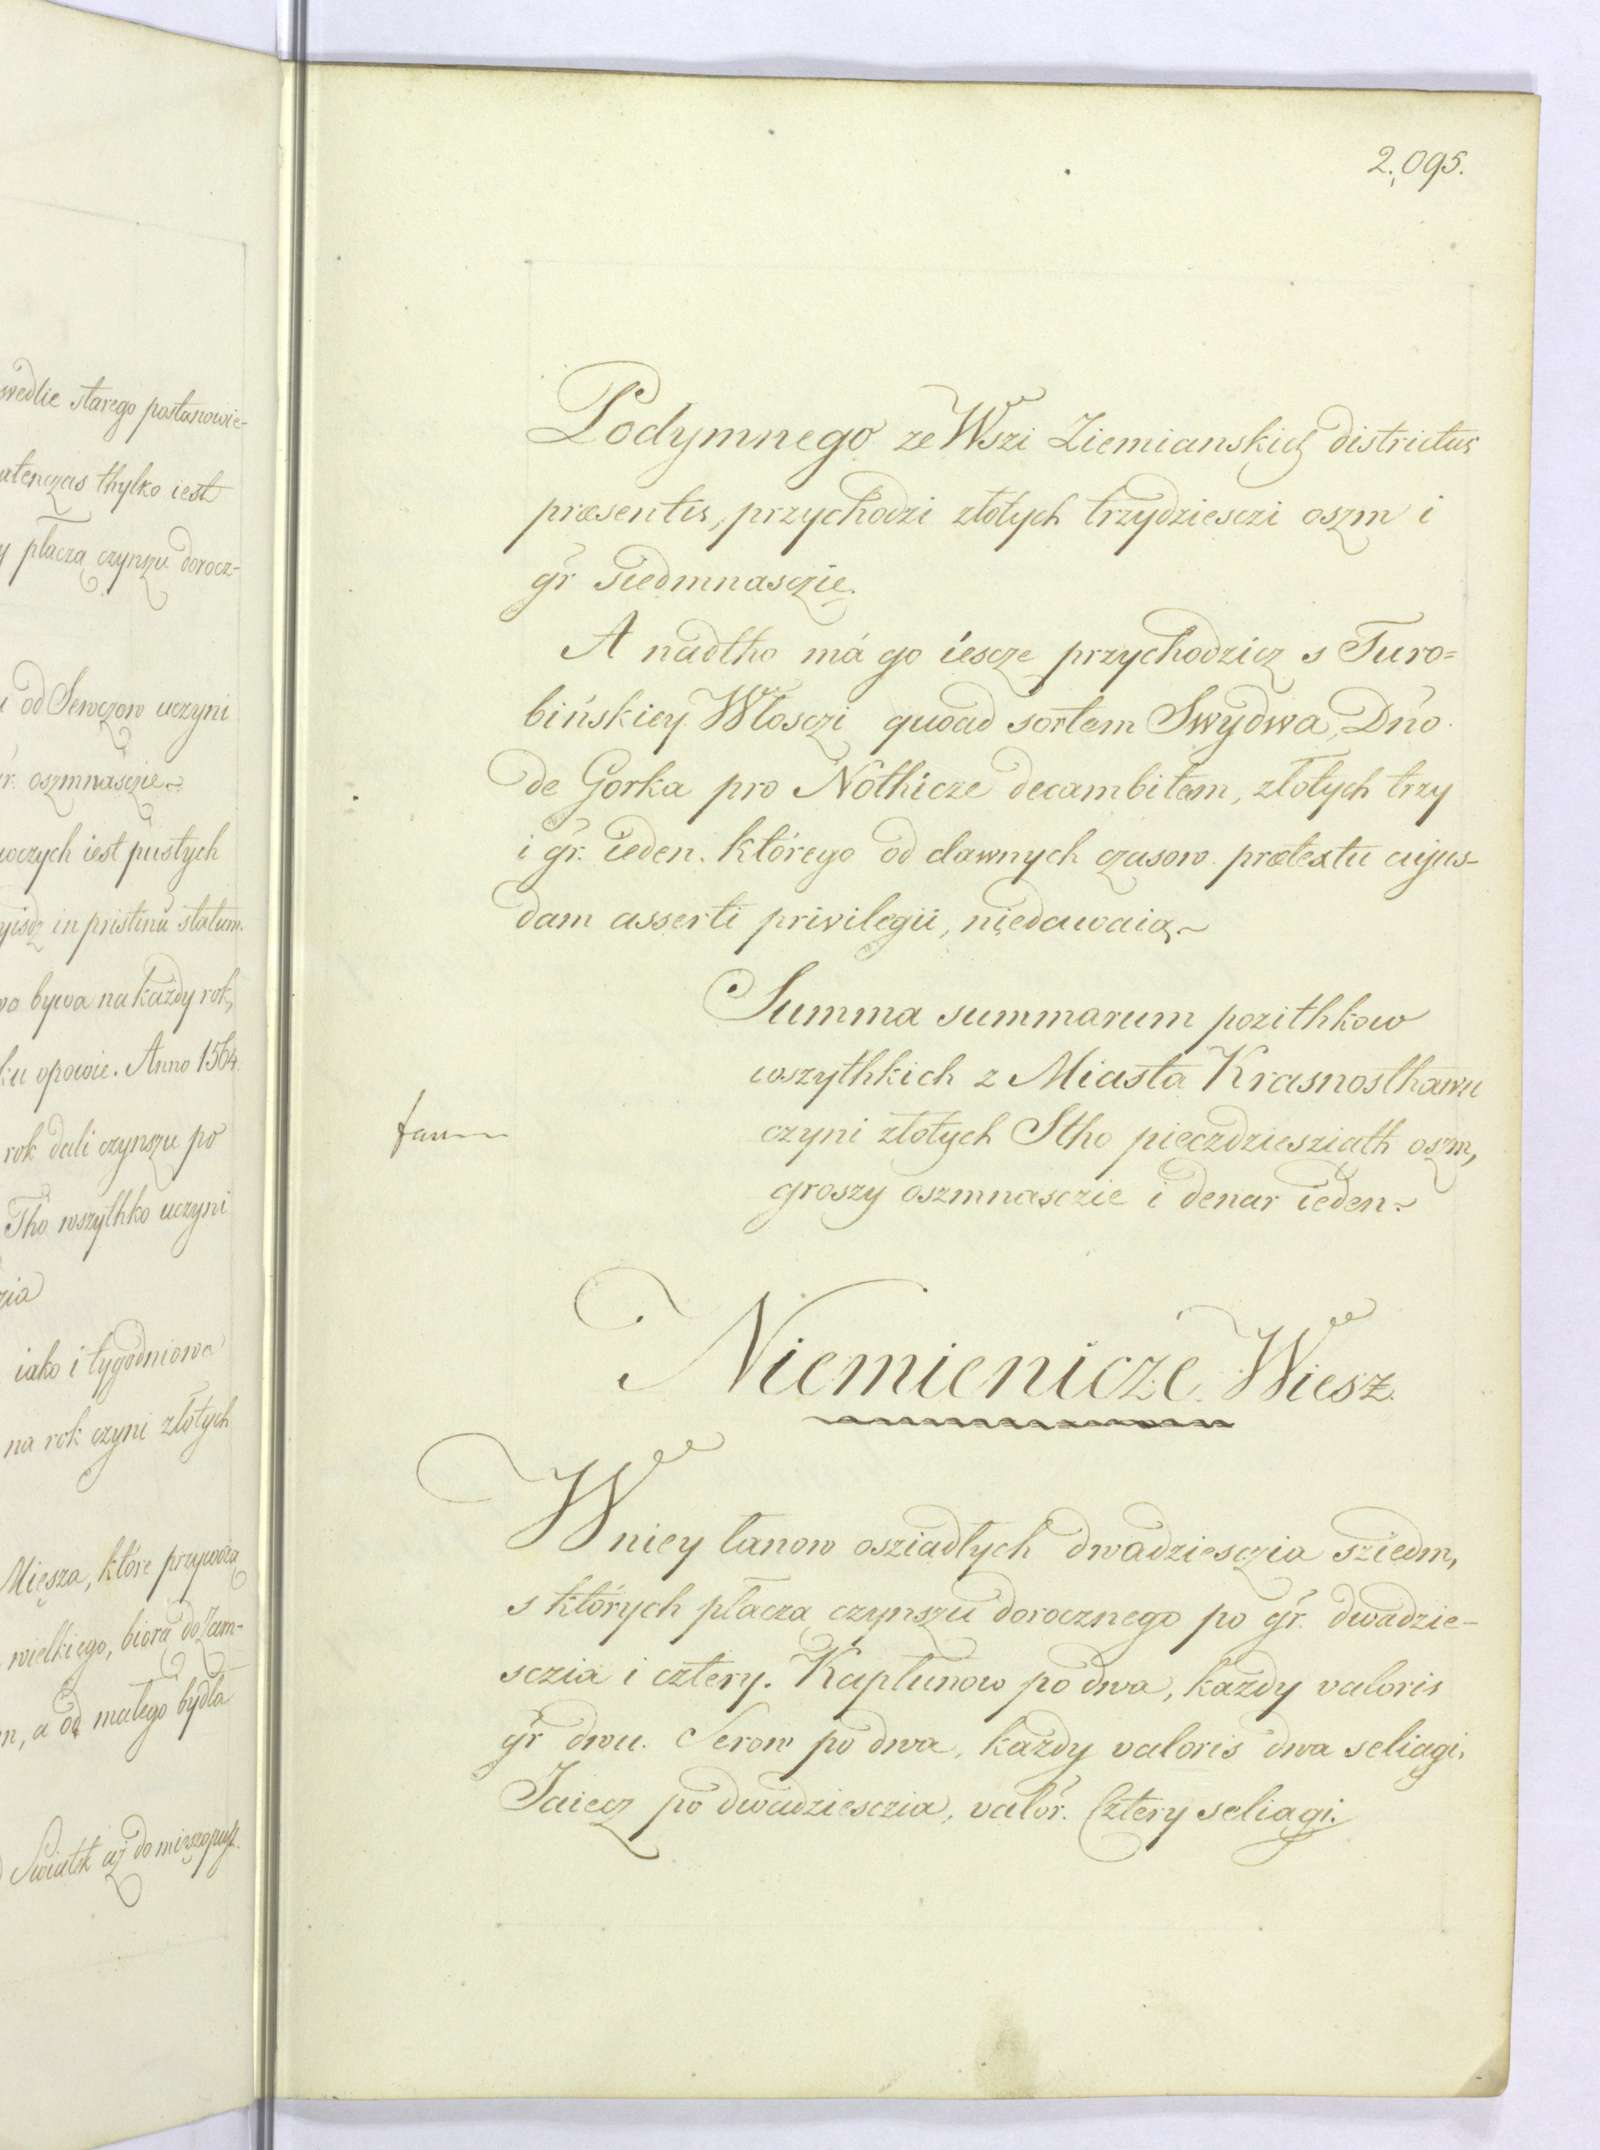 wedlie starego postanowie-
atenczas thylko iest
y płaczą czynszu dorocz-
od Sewczow uczyni
gr. oszmnasczie
iest pustych
in pristinu statum.
bywa na każdy rok,
ku opowie. Anno 1564.
rok dali czynszu po
Tho wszythko uczyni
iako i tygodniowe
na rok czyni złotych
Mięsza, które przywożą
wielkiego, biorą do Zam-
a od małego bydła
Swiatk aż do mięszopust.
2,095.
Podymnego ze Wszi Ziemianskich districtus
præsentis, przychodzi złotych trzydziesczi oszm i
gr siedmnasczie.
A nadtho má go iescze przychodzicz s Turo=
bińskiey Włosczi quoad sortem Swydwa, Dno
de Gorka pro Nothicze decambitem, złotych trzy
i gr. ieden. którego od dawnych czasow prætextu cujus-
dam asserti privilegii, niedawaią
Summa summarum pozithkow
wszythkich z Miasta Krasnosthawu
czyni złotych Stho pieczdziesziath oszm,
groszy oszmnasczie i denar ieden
Niemienicze Wiesz.
W niey łanow osziadłych dwadziesczia sziedm,
s których płacza czynszu dorocznego po gr. dwadzie-
sczia i cztery. Kapłunow po dwa, każdy valoris
gr dwu. Serow po dwa, każdy valoris dwa seliagi,
Jaiecz po dwadziesczia, valor. Cztery seliagi.